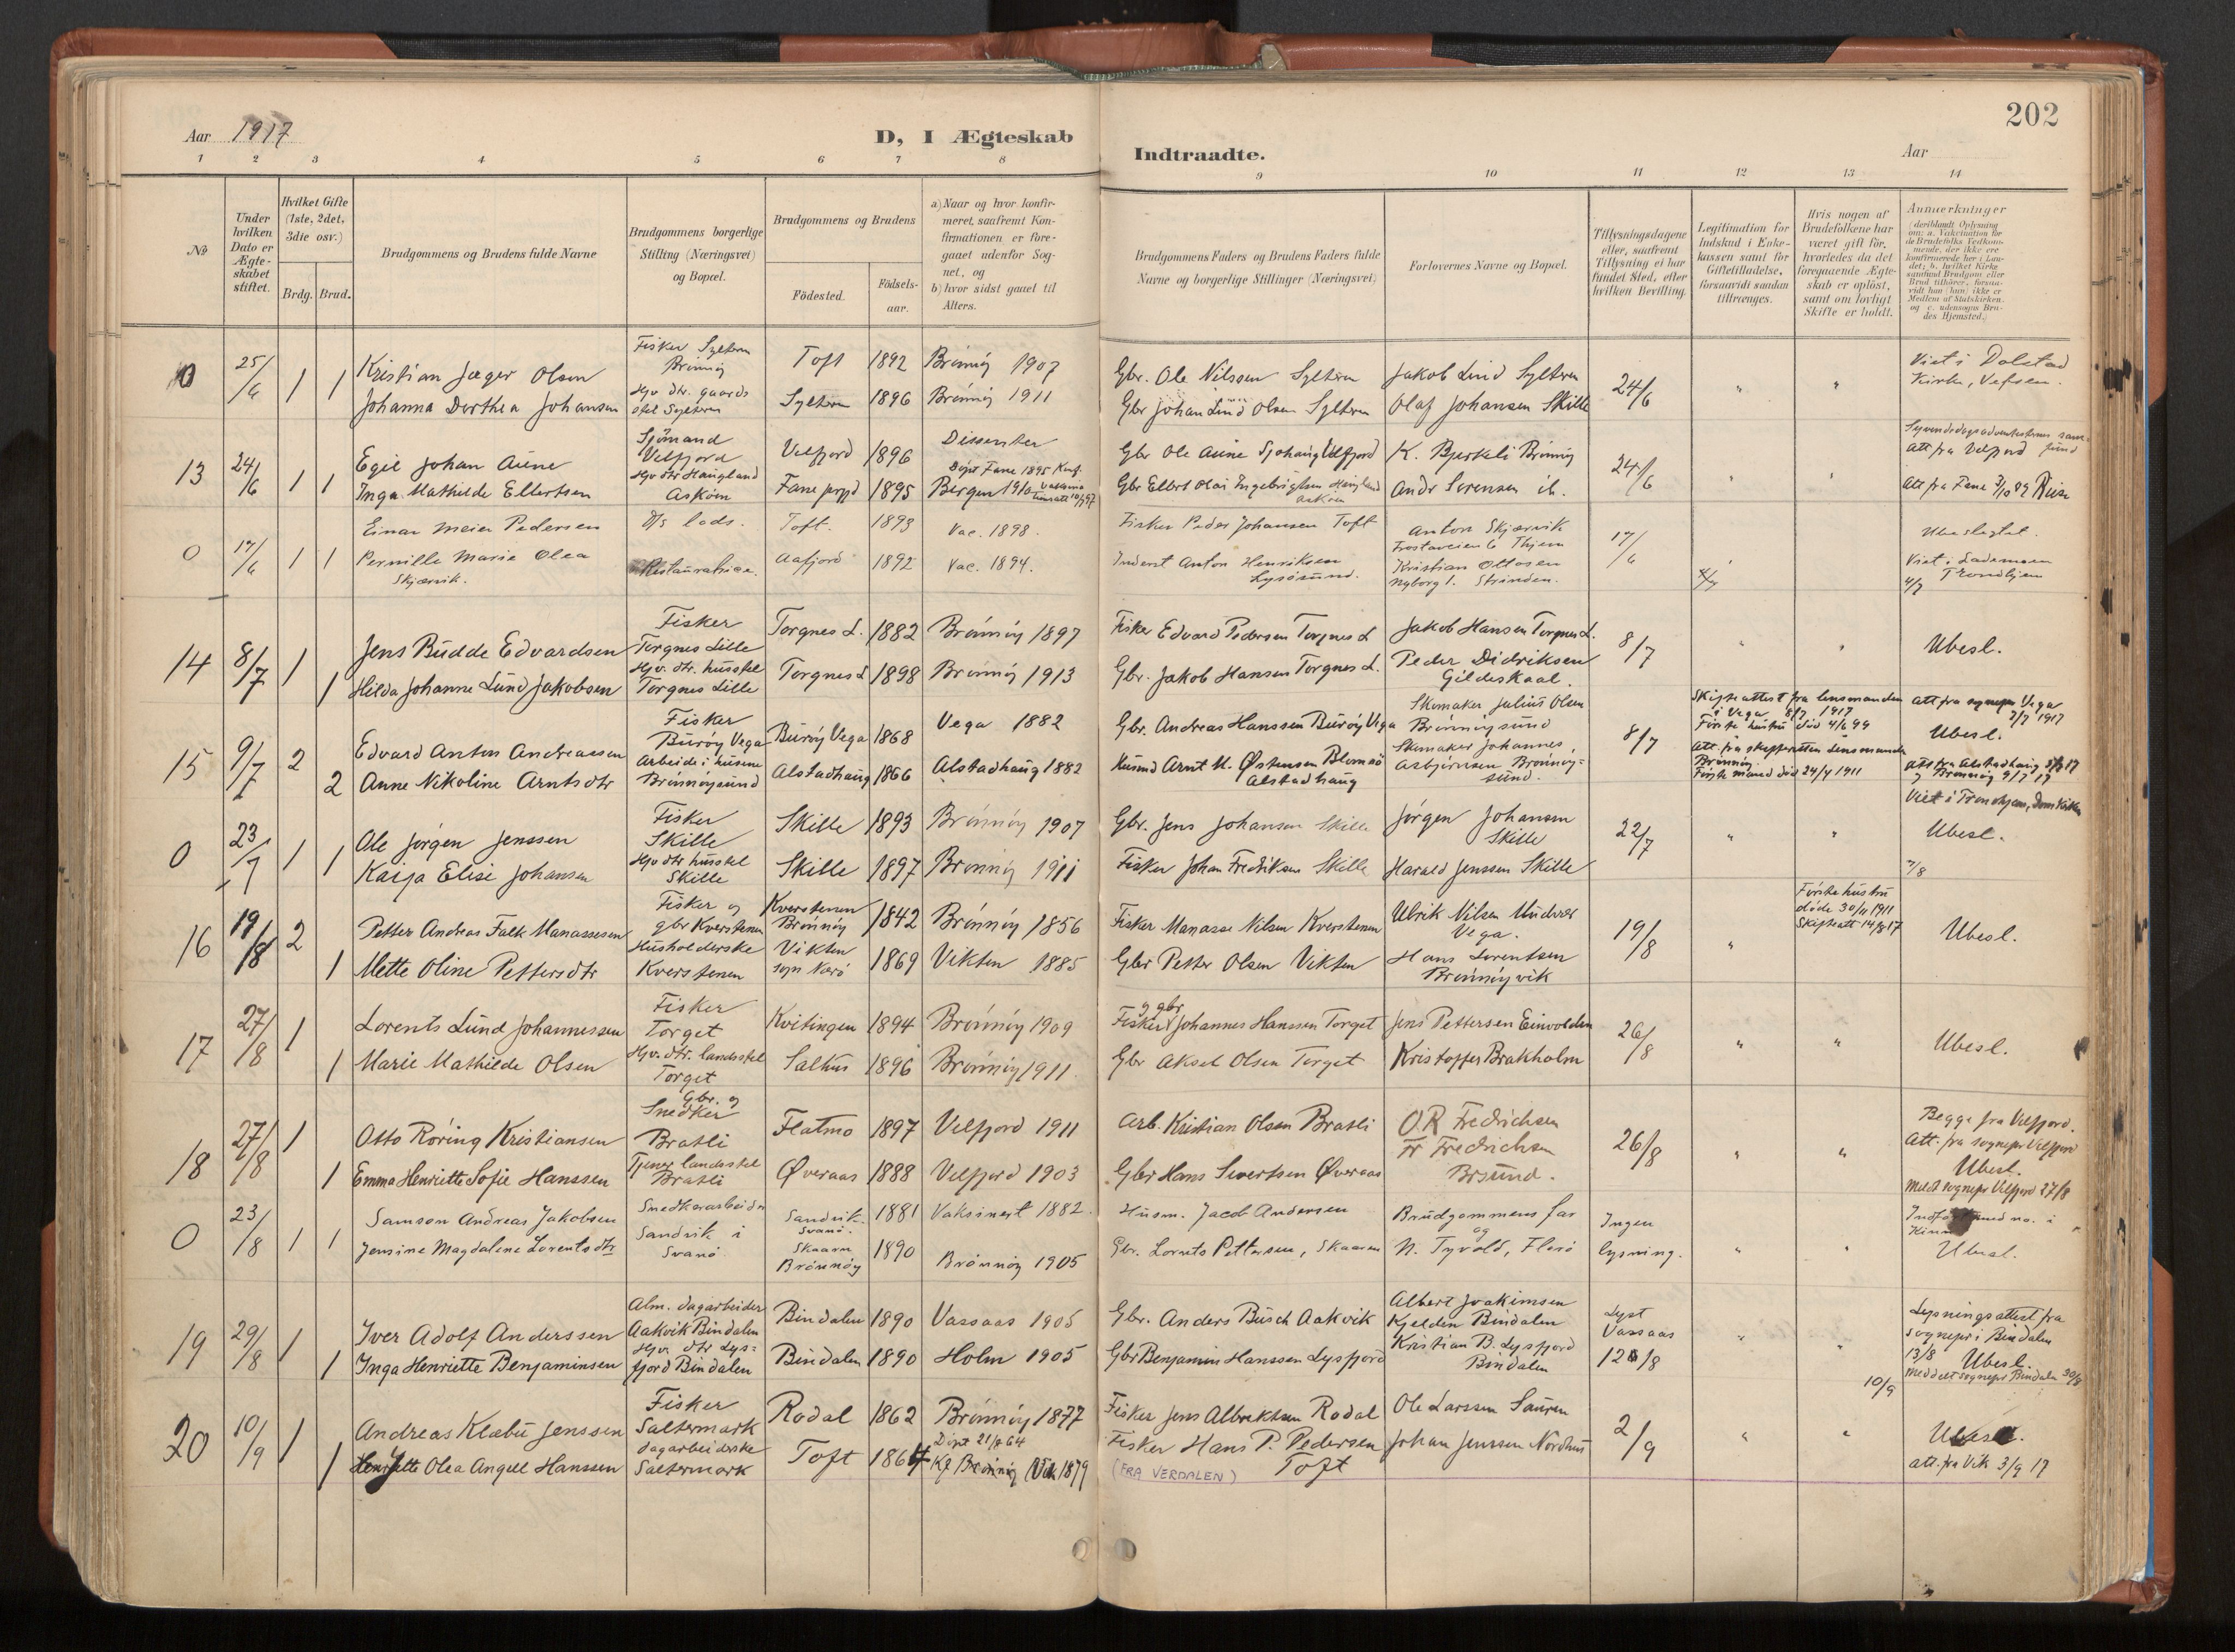 202
Aar 1917
D, I Ægteskab
Indtraadte.
Aar
1 2 3 4 5 6 7 8 9 10 11 12 13 14
№
Under hvilken Dato er Ægteskabet stiftet.
Hvilket Gifte (1ste, 2det, 3die osv.)
Brdg. Brud.
Brudgommens og Brudens fulde Navne
Brudgommens borgerlige Stilling (Næringsvei) og Bopæl.
Brudgommens og Brudens
Födested.
Födsels-aar.
a) Naar og hvor konfirmeret, saafremt Konfirmationen er foregaaet udenfor Sognet, og
b) hvor sidst gaaet til Alters.
Brudgommens Faders og Brudens Faders fulde Navne og borgerlige Stillinger (Næringsvei)
Forlovernes Navne og Bopæl.
Tillysningsdagene eller, saafremt Tillysning ei har fundet Sted, efter hvilken Bevilling.
Legitimation for Indskud i Enkekassen samt for Giftetilladelse, forsaavidt saadan tiltrænges.
Hvis nogen af Brudefolkene har været gift för, hvorledes da det foregaaende Ægteskab er oplöst, samt om lovligt Skifte er holdt.
Anmerkninger (deriblandt Oplysning om: a. Vakcination for de Brudefolks Vedkommende, der ikke ere konfirmerede her i Landet; b. hvilket Kirkesamfund Brudgom eller Brud tilhörer, forsaavidt han (hun) ikke er Medlem af Statskirken, og c. udensogns Brudes Hjemsted.)
0 25/6 1 1
Kristian Jæger Olsen Fisker Sylteren Brönnöy Toft 1892 Brönnöy 1907 Gbr. Ole Nilssen Sylteren Jakob Lind Sylteren 24/6 " " Viet i Dolstad Kirke, Vefsen.
Johanna Dorthea Johansen Hjv. dtr. gaardsstel Sylteren Sylteren 1896 Brönnöy 1911 Gbr Johan Lund Olsen Sylteren Olaf Johansen Skille
13 24/6 1 1
Egil Johan Aune Sjömand Velfjord Velfjord 1896 Dissenter Gbr Ole Aune Sjohaug Velfjord K. Bjerkeli Brönnöy 24/6 " " Syvendedagsadventisternes samfund Att fra Velfjord
Inga Mathilde Ellertsen Hjv dtr Haugland Askøen Fane prgjd 1895 Döpt Fane 1895 Knf. Bergen 1910 Gbr Ellert Olai Ingebrigtsen Haugland Askøen Andr Sorensen ib. Att fra Fane 3/10 89
0 17/6 1 1
Einar Meier Pedersen D/S lods. Toft. 1893 Vac. 1898. Fisker Peder Johansen Toft Anton Skjærvik Frostaveien 6 Thjem 17/6 Ubeslægtet.
Pernille Marie Olea Skjærvik. Restauratrice. Aafjord 1892 Vac. 1894. Inderst Anton Henriksen Lysösund. Kristian Ottosen Nyborg 1. Strinden. 4/7 Viet i Lademoen Trondhjem 4/7
14 8/7 1 1
Jens Budde Edvardsen Fisker Torgnes Lille Torgnes L. 1882 Brönnöy 1897 Fisker Edvard Pedersen Torgnes L Jakob Hansen Torgnes L. 8/7 " " Ubesl.
Hilda Johanne Lund Jakobsen Hjv. dtr. husstel Torgnes Lille Torgnes L 1898 Brönnöy 1913 Gbr. Jakob Hansen Torgnes L. Peder Didriksen Gildeskaal.
15 9/7 2 2
Edvard Anton Andreassen Fisker Buröy Vega Buröy Vega 1868 Vega 1882 Gbr. Andreas Hanssen Buröy Vega Skomaker Julius Olsen Brönnöysund 8/7 Skifteattest fra lensmanden i Vega 8/7 1917 Förste hustru död 4/6 99 Att fra sognepr Vega 7/7 1917 Ubesl.
Anne Nikoline Arntsdtr Arbeide i husene Brönnöysund Alstadhaug 1866 Alstadhaug 1882 Husmd Arnt M. Østensen Blomsö Alstadhaug Skomaker Johannes Asbjörnsen Brönnöysund. Att. fra skifteretten Lensmanden Brönnöy. Förste mand död 24/4 1911 Att fra Alstadhaug og Brönnöy 9/7 17
0 23/7 1 1
Ole Jørgen Jenssen Fisker Skille Skille 1893 Brönnöy 1907 Gbr. Jens Johansen Skille Jörgen Johansen Skille 22/7 " " Viet i Tronhjem, Domkirken Ubesl.
Kaija Elise Johansen Hjv dtr husstel Skille Skille 1897 Brönnöy 1911 Fisker Johan Fredriksen Skille Harald Jenssen Skille 7/8
16 19/8 2 1
Petter Andreas Falk Manassesen Fisker og gbr Kverstenen Kverstenen Brönnöy 1842 Brönnöy 1856 Fisker Manasse Nilsen Kverstenen Ulrik Nilsen Undvær Vega. 19/8 " Förste hustru döde 30/11 1911 Skifteatt 14/8 17 Ubesl.
Mette Oline Pettersdtr Husholderske Kverstenen Vikten sogn Nærö 1869 Vikten 1885 Gbr Petter Olsen Vikten Hans Lorentsen Brönnöyvik
17 27/8 1 1
Lorents Lund Johannessen Fisker Torget Kvitingen 1894 Brönnöy 1909 Fisker og gbr Johannes Hanssen Torget Jens Pettersen Einvolden 26/8 " " Ubesl.
Marie Mathilde Olsen Hjv. dtr. landsstel Torget Salhus 1896 Brönnöy 1911. Gbr Aksel Olsen Torget Kristoffer Brakholm
18 27/8 1 1
Otto Röring Kristiansen Gbr. og Snedker Bratli Flatmo 1897 Velfjord 1911 Arb. Kristian Olsen Bratli O.R Fredrichsen 26/8 " " Begge fra Velfjord. Att. fra sognepr Velfjord
Emma Henriette Sofie Hanssen Tjener landsstel Bratli Øveraas 1888 Velfjord 1903 Gbr Hans Sivertsen Øveraas Fr Fredrichsen Brsund. Ubesl. Meldt sognepr Velfjord 27/8
0 23/8 1 1
Samson Andreas Jakobsen Snedkerarbeider Sandvik i Svanö Sandvik Svanö. 1881 Vaksinert 1882. Husm. Jacob Andersen Brudgommens far og Ingen lysning. " " Indfört med no. i Kinn
Jensine Magdalene Lorentsdtr Skaaren Brönnöy 1890 Brönnöy 1905 Gbr. Lornts Pettersen, Skaaren N. Tyvold, Florö Ubesl.
19 29/8 1 1
Iver Adolf Anderssen Alm. dagarbeider Aakvik Bindalen Bindalen 1890 Vassaas 1905 Gbr. Anders Busch Aakvik Albert Joakimsen Kjelden Bindalen Lyst Vassaas 12/8 " " Lysningsattest fra sognepr i Bindalen 13/8 Ubesl.
Inga Henriette Benjaminsen Hjv. dtr Lysfjord Bindalen Bindalen 1890 Holm 1905 Gbr Benjamin Hanssen Lysfjord Kristian B. Lysfjord Bindalen Meddelt sognepr Bindalen 30/8
20 10/9 1 1
Andreas Klæbu Jenssen Fisker Saltermark Rodal 1862 Brönnöy 1877 Fisker Jens Albrektsen Rodal Ole Larssen Sauren 2/9 " " 10/9 Ubesl.
Henriette Olea Angell Hanssen Dagarbeiderske Saltermark Toft 1864 Döpt 21/8 64 Kf Brönnöy (Vik 1879 Fisker Hans P. Pedersen Toft (FRA VERDALEN) Johan Jenssen Nordhus att. fra Vik 3/9 17